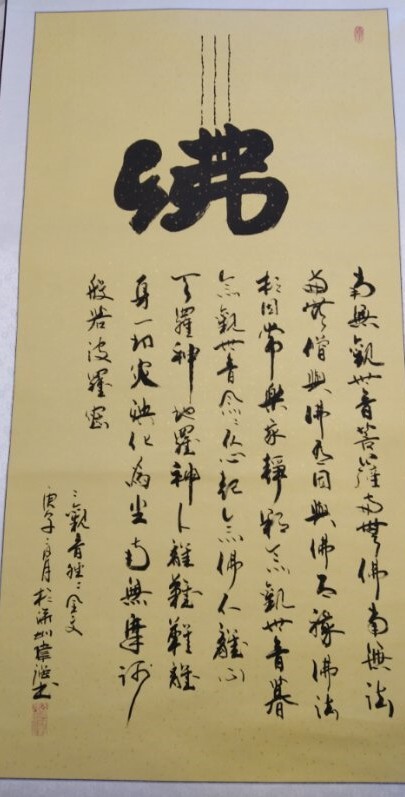 佛
南無觀世音菩薩南無佛南無法
南無僧與佛有因與佛有緣佛法
相因常樂我靜朝念觀世音暮
念觀世音念念從心起念佛不離心
天羅神地羅神人離難難離
身一切災殃化為尘南無摩訶
般若波羅蜜
觀音經全文
庚子月於深圳書